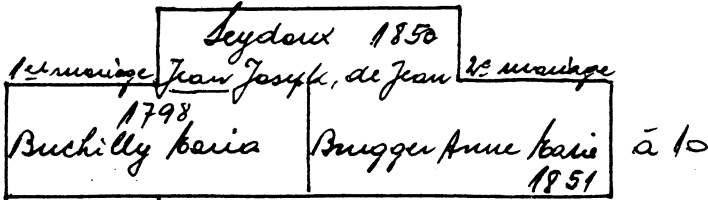 Seydoux 1850
1er mariage Jean Joseph, de Jean 2e mariage
1798
Buchilly Maria Brugger Anne Marie à 10
1851